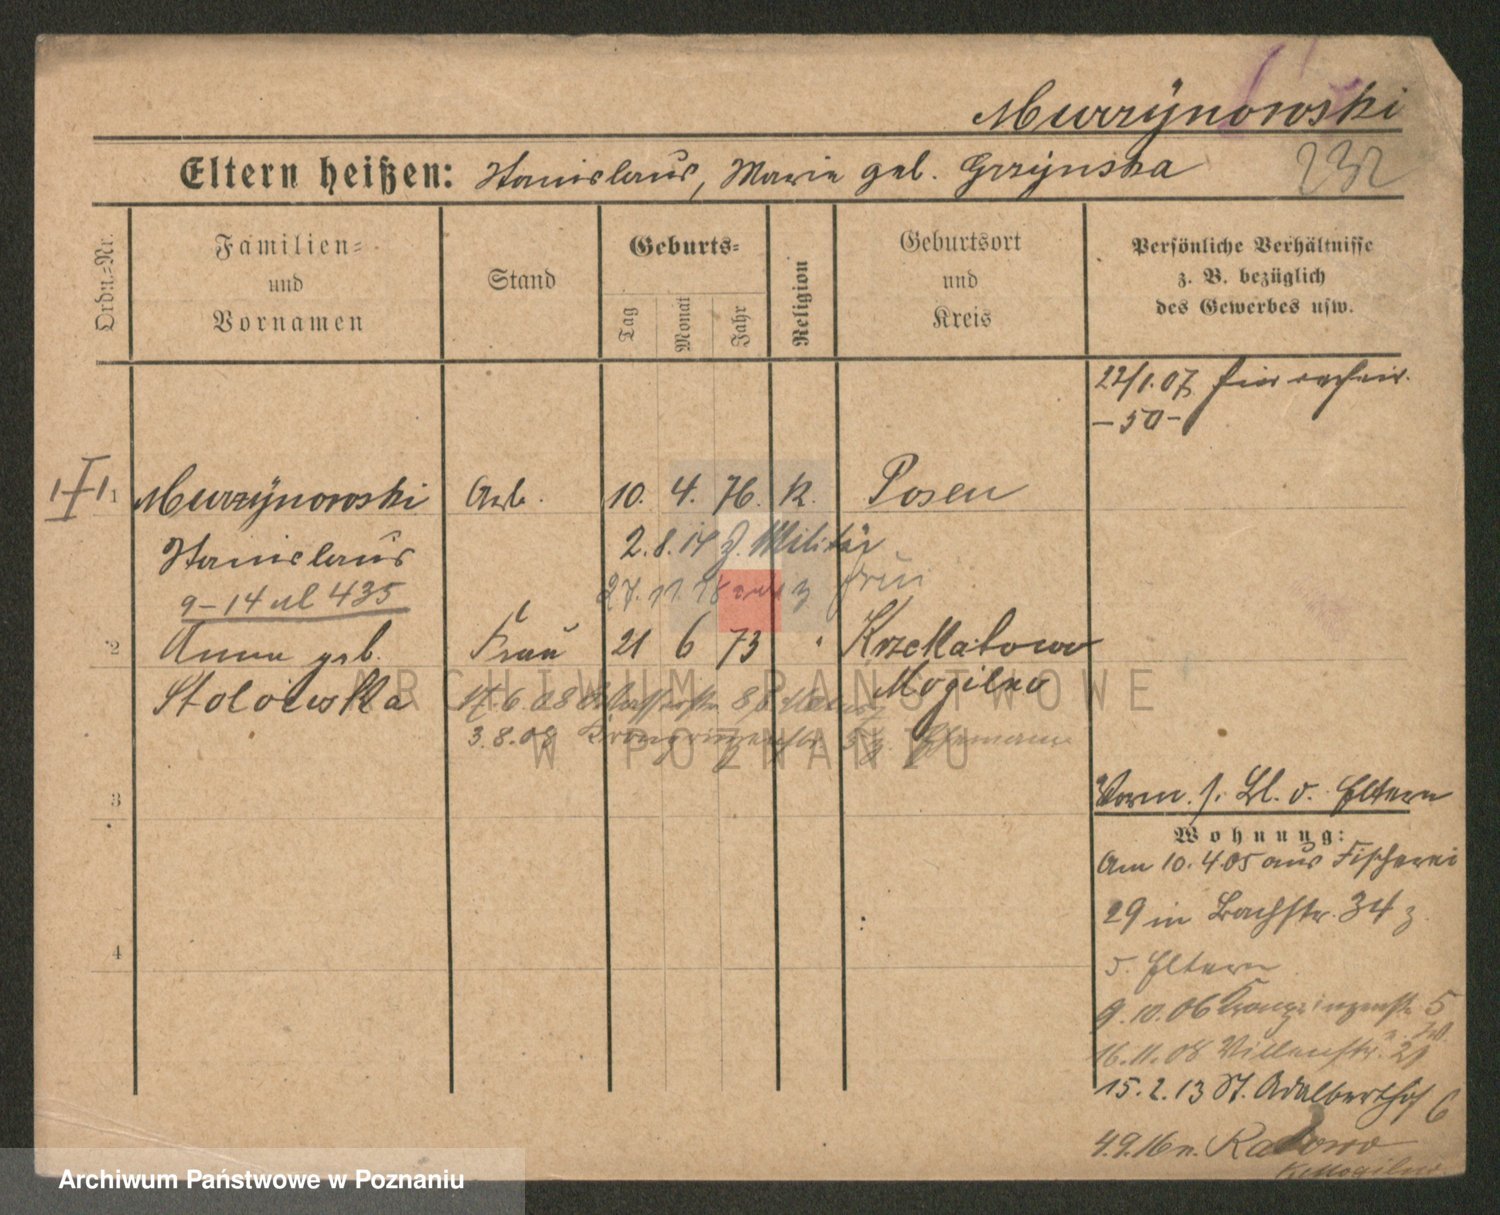 Murzynowski
Eltern heißen: Stanislaus, Marie geb. Grzynska
232
Ordn.=Nr.
Familien=
und
Vornamen
Stand
Geburts=
Tag
Monat
Jahr
Religion
Geburtsort
und
Kreis
Persönliche Verhältnisse
z. B. bezüglich
des Gewerbes usw.
22/1.07
-50-
1 Murzynowski Arb. 10. 4. 76. K. Posen
Stanislaus 2.8.14 z. Militär
9-14 ul 435 27.11.18
2 Anna geb. Frau 21 6 73 " Krzekotowo
Stolowska Mogilno
17.6.08
3.8.08 Kronprinzenstr. Ehemann
3
Vorm. s. Bl. d. Eltern
Wohnung:
Am 10.4.05 aus Fischerei
29 in Bachstr. 34 z.
d. Eltern
9.10.06 Kronprinzenstr. 5
16.11.08 Villenstr. 21
4
15.2.13 St. Adalberthof 6
4.9.16 n. Radowo
K. Mogilno
ARCHIWUM PAŃSTWOWE
W POZNANIU
Archiwum Państwowe w Poznaniu